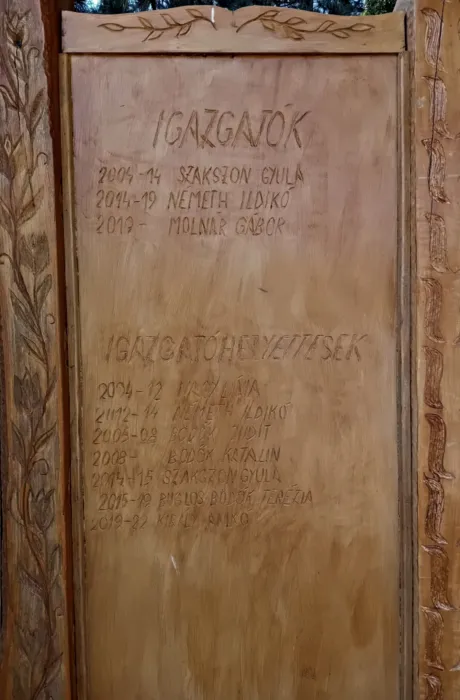 IGAZGATÓK
2004-14 SZAKSZON GYULA
2014-19 NÉMETH ILDIKÓ
2019- MOLNÁR GÁBOR
IGAZGATÓHELYETTESEK
2004-12
2012-14 NÉMETH ILDIKÓ
2005-08 BODOK JUDIT
2008- BODOK KATALIN
2014-15 SZAKSZON GYULA
2015-19 BUGLOS-BODOK TERÉZIA
2019-22